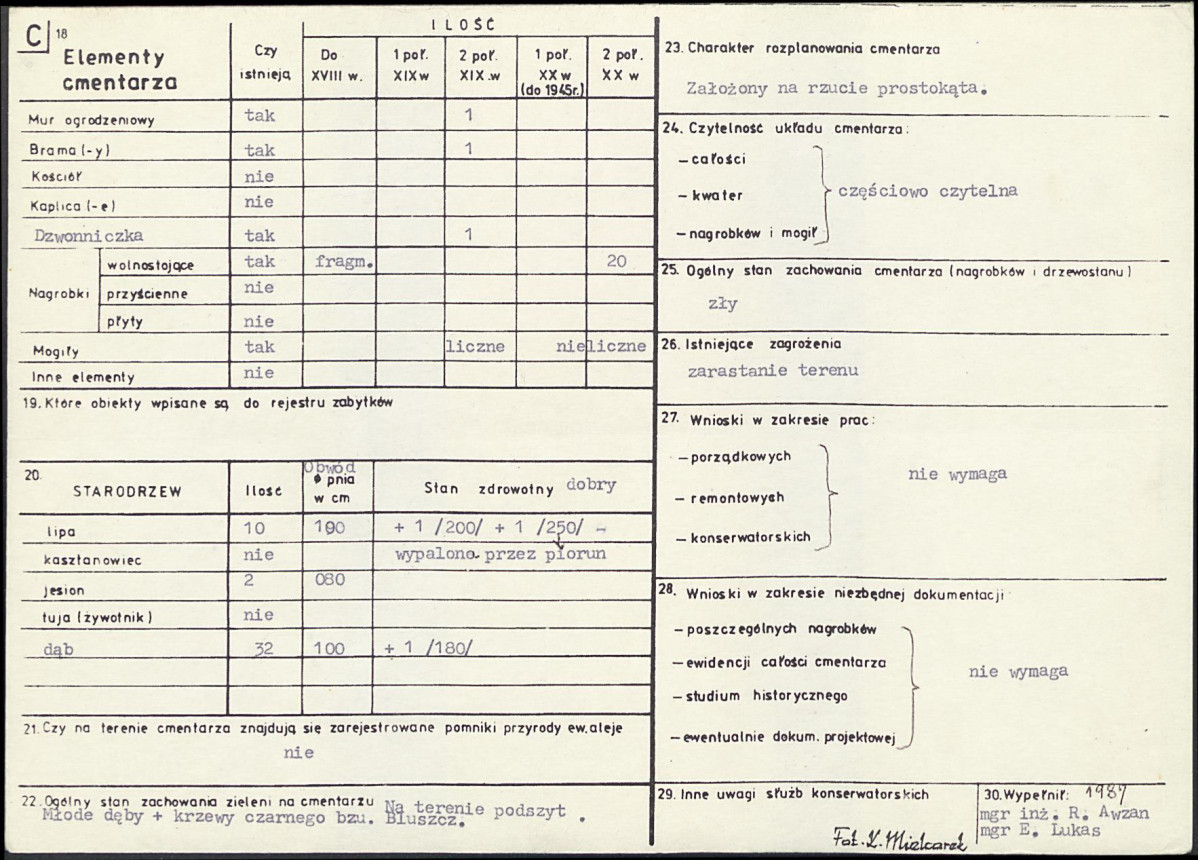 C 18
Elementy cmentarza
Czy istnieją
ILOŚĆ
Do XVIII w.
1 poł. XIX w
2 poł. XIX w
1 poł. XX w (do 1945r.)
2 poł. XX w
Mur ogrodzeniowy tak 1
Brama (-y) tak 1
Kościół nie
Kaplica (-e) nie
Dzwonniczka tak 1
Nagrobki
wolnostojące tak fragm. 20
przyścienne nie
płyty nie
Mogiły tak liczne nieliczne
Inne elementy nie
19. Które obiekty wpisane są do rejestru zabytków
20. STARODRZEW Ilość Obwód pnia w cm Stan zdrowotny dobry
lipa 10 190 + 1 /200/ + 1 /250/ -
kasztanowiec nie wypalono przez piorun
jesion 2 080
tuja (żywotnik) nie
dąb 32 100 + 1 /180/
21. Czy na terenie cmentarza znajdują się zarejestrowane pomniki przyrody ew. aleje
nie
22. Ogólny stan zachowania zieleni na cmentarzu Na terenie podszyt .
Młode dęby + krzewy czarnego bzu. Bluszcz.
23. Charakter rozplanowania cmentarza
Założony na rzucie prostokąta.
24. Czytelność układu cmentarza:
– całości
– kwater częściowo czytelna
– nagrobków i mogił
25. Ogólny stan zachowania cmentarza (nagrobków i drzewostanu)
zły
26. Istniejące zagrożenia
zarastanie terenu
27. Wnioski w zakresie prac:
– porządkowych
nie wymaga
– remontowych
– konserwatorskich
28. Wnioski w zakresie niezbędnej dokumentacji
– poszczególnych nagrobków
– ewidencji całości cmentarza
nie wymaga
– studium historycznego
– ewentualnie dokum. projektowej
29. Inne uwagi służb konserwatorskich
Fot. K. Mielcarek
30. Wypełnił: 1987
mgr inż. R. Awzan
mgr E. Lukas